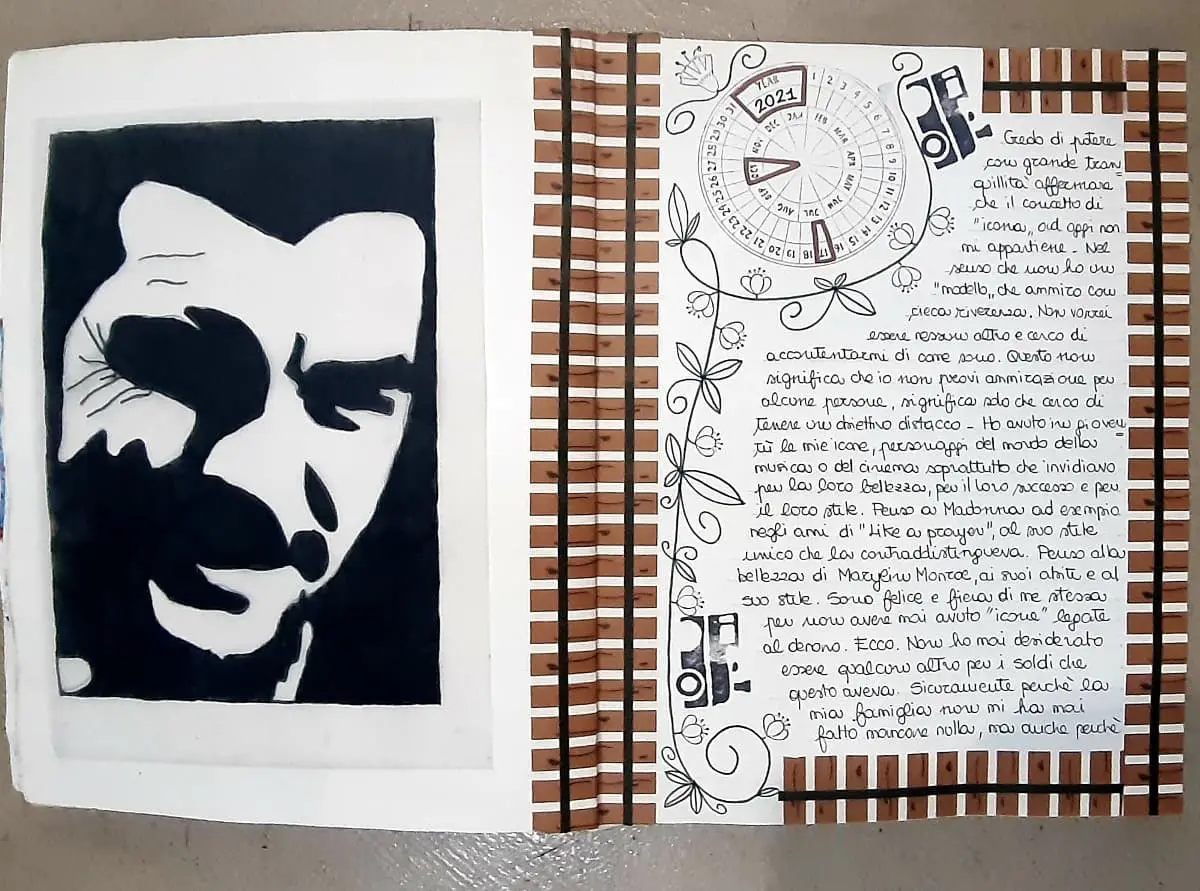 YEAR
2021
1 2 3 4 5 6 7 8 9 10 11 12 13 14 15 16 17 18 19 20 21 22 23 24 25 26 27 28 29 30 31
JAN FEB MAR APR MAY JUN JUL AUG SEP OCT NOV DEC
Credo di potere
con grande tran=
quillità affermare
che il concetto di
"icona„ ad oggi non
mi appartiene - Nel
senso che non ho un
"modello„ che ammiro con
cieca riverenza. Non vorrei
essere nessun altro e cerco di
accontentarmi di come sono. Questo non
significa che io non provi ammirazione per
alcune persone, significa solo che cerco di
tenere un obiettivo distacco - Ho avuto in gioven=
tù le mie icone, personaggi del mondo della
musica o del cinema soprattutto che invidiavo
per la loro bellezza, per il loro successo e per
il loro stile. Penso a Madonna ad esempio
negli anni di "Like a prayer", al suo stile
unico che la contraddistingueva. Penso alla
bellezza di Marylin Monroe, ai suoi abiti e al
suo stile. Sono felice e fiera di me stessa
per non avere mai avuto "icone" legate
al denaro. Ecco. Non ho mai desiderato
essere qualcuno altro per i soldi che
questo aveva. Sicuramente perchè la
mia famiglia non mi ha mai
fatto mancare nulla, ma anche perchè